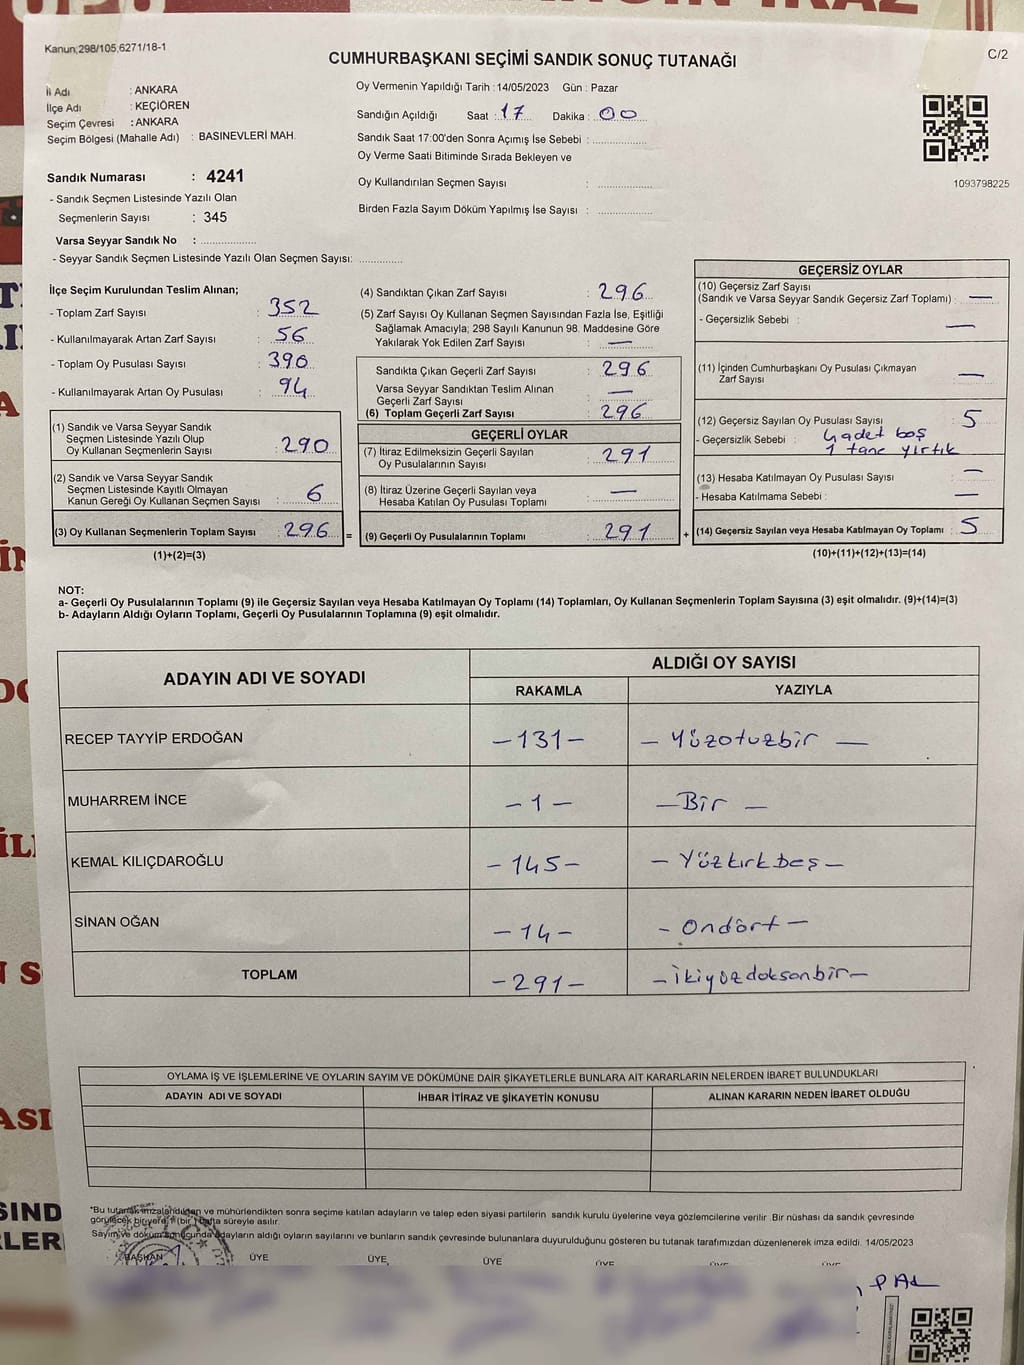 Kanun;298/105,6271/18-1
CUMHURBAŞKANI SEÇİMİ SANDIK SONUÇ TUTANAĞI
C/2
İl Adı : ANKARA
İlçe Adı : KEÇİÖREN
Seçim Çevresi : ANKARA
Seçim Bölgesi (Mahalle Adı) : BASINEVLERİ MAH.
Sandık Numarası : 4241
- Sandık Seçmen Listesinde Yazılı Olan
Seçmenlerin Sayısı : 345
Varsa Seyyar Sandık No : ..................
- Seyyar Sandık Seçmen Listesinde Yazılı Olan Seçmen Sayısı: ..............
Oy Vermenin Yapıldığı Tarih : 14/05/2023 Gün : Pazar
Sandığın Açıldığı Saat : 17 Dakika : 00
Sandık Saat 17:00'den Sonra Açımış İse Sebebi : ..................
Oy Verme Saati Bitiminde Sırada Bekleyen ve
Oy Kullandırılan Seçmen Sayısı : ..................
Birden Fazla Sayım Döküm Yapılmış İse Sayısı : ..................
1093798225
İlçe Seçim Kurulundan Teslim Alınan;
- Toplam Zarf Sayısı : 352
- Kullanılmayarak Artan Zarf Sayısı : 56
- Toplam Oy Pusulası Sayısı : 390
- Kullanılmayarak Artan Oy Pusulası : 94
(1) Sandık ve Varsa Seyyar Sandık
Seçmen Listesinde Yazılı Olup
Oy Kullanan Seçmenlerin Sayısı : 290
(2) Sandık ve Varsa Seyyar Sandık
Seçmen Listesinde Kayıtlı Olmayan
Kanun Gereği Oy Kullanan Seçmen Sayısı : 6
(3) Oy Kullanan Seçmenlerin Toplam Sayısı : 296 =
(1)+(2)=(3)
(4) Sandıktan Çıkan Zarf Sayısı : 296
(5) Zarf Sayısı Oy Kullanan Seçmen Sayısından Fazla İse, Eşitliği
Sağlamak Amacıyla; 298 Sayılı Kanunun 98. Maddesine Göre
Yakılarak Yok Edilen Zarf Sayısı : —
Sandıkta Çıkan Geçerli Zarf Sayısı : 296
Varsa Seyyar Sandıktan Teslim Alınan
Geçerli Zarf Sayısı : —
(6) Toplam Geçerli Zarf Sayısı : 296
GEÇERLİ OYLAR
(7) İtiraz Edilmeksizin Geçerli Sayılan
Oy Pusulalarının Sayısı : 291
(8) İtiraz Üzerine Geçerli Sayılan veya
Hesaba Katılan Oy Pusulası Toplamı : —
(9) Geçerli Oy Pusulalarının Toplamı : 291 +
GEÇERSİZ OYLAR
(10) Geçersiz Zarf Sayısı
(Sandık ve Varsa Seyyar Sandık Geçersiz Zarf Toplamı) : —
- Geçersizlik Sebebi : —
(11) İçinden Cumhurbaşkanı Oy Pusulası Çıkmayan
Zarf Sayısı : —
(12) Geçersiz Sayılan Oy Pusulası Sayısı : 5
- Geçersizlik Sebebi : 4 adet boş
1 tane yırtık
(13) Hesaba Katılmayan Oy Pusulası Sayısı : —
- Hesaba Katılmama Sebebi : —
(14) Geçersiz Sayılan veya Hesaba Katılmayan Oy Toplamı : 5
(10)+(11)+(12)+(13)=(14)
NOT:
a- Geçerli Oy Pusulalarının Toplamı (9) ile Geçersiz Sayılan veya Hesaba Katılmayan Oy Toplamı (14) Toplamları, Oy Kullanan Seçmenlerin Toplam Sayısına (3) eşit olmalıdır. (9)+(14)=(3)
b- Adayların Aldığı Oyların Toplamı, Geçerli Oy Pusulalarının Toplamına (9) eşit olmalıdır.
ADAYIN ADI VE SOYADI
ALDIĞI OY SAYISI
RAKAMLA YAZIYLA
RECEP TAYYİP ERDOĞAN -131- - Yüzotuzbir -
MUHARREM İNCE -1- - Bir -
KEMAL KILIÇDAROĞLU -145- - Yüzkırkbeş -
SİNAN OĞAN -14- - Ondört -
TOPLAM -291- - İkiyüzdoksanbir -
OYLAMA İŞ VE İŞLEMLERİNE VE OYLARIN SAYIM VE DÖKÜMÜNE DAİR ŞİKAYETLERLE BUNLARA AİT KARARLARIN NELERDEN İBARET BULUNDUKLARI
ADAYIN ADI VE SOYADI İHBAR İTİRAZ VE ŞİKAYETİN KONUSU ALINAN KARARIN NEDEN İBARET OLDUĞU
"Bu tutanak imzalandıktan ve mühürlendikten sonra seçime katılan adayların ve talep eden siyasi partilerin sandık kurulu üyelerine veya gözlemcilerine verilir. Bir nüshası da sandık çevresinde
görülecek bir yere 1 (bir) hafta süreyle asılır.
Sayım ve döküm sonucunda adayların aldığı oyların sayılarını ve bunların sandık çevresinde bulunanlara duyurulduğunu gösteren bu tutanak tarafımızdan düzenlenerek imza edildi. 14/05/2023
BAŞKAN ÜYE ÜYE, ÜYE ÜYE ÜYE ÜYE